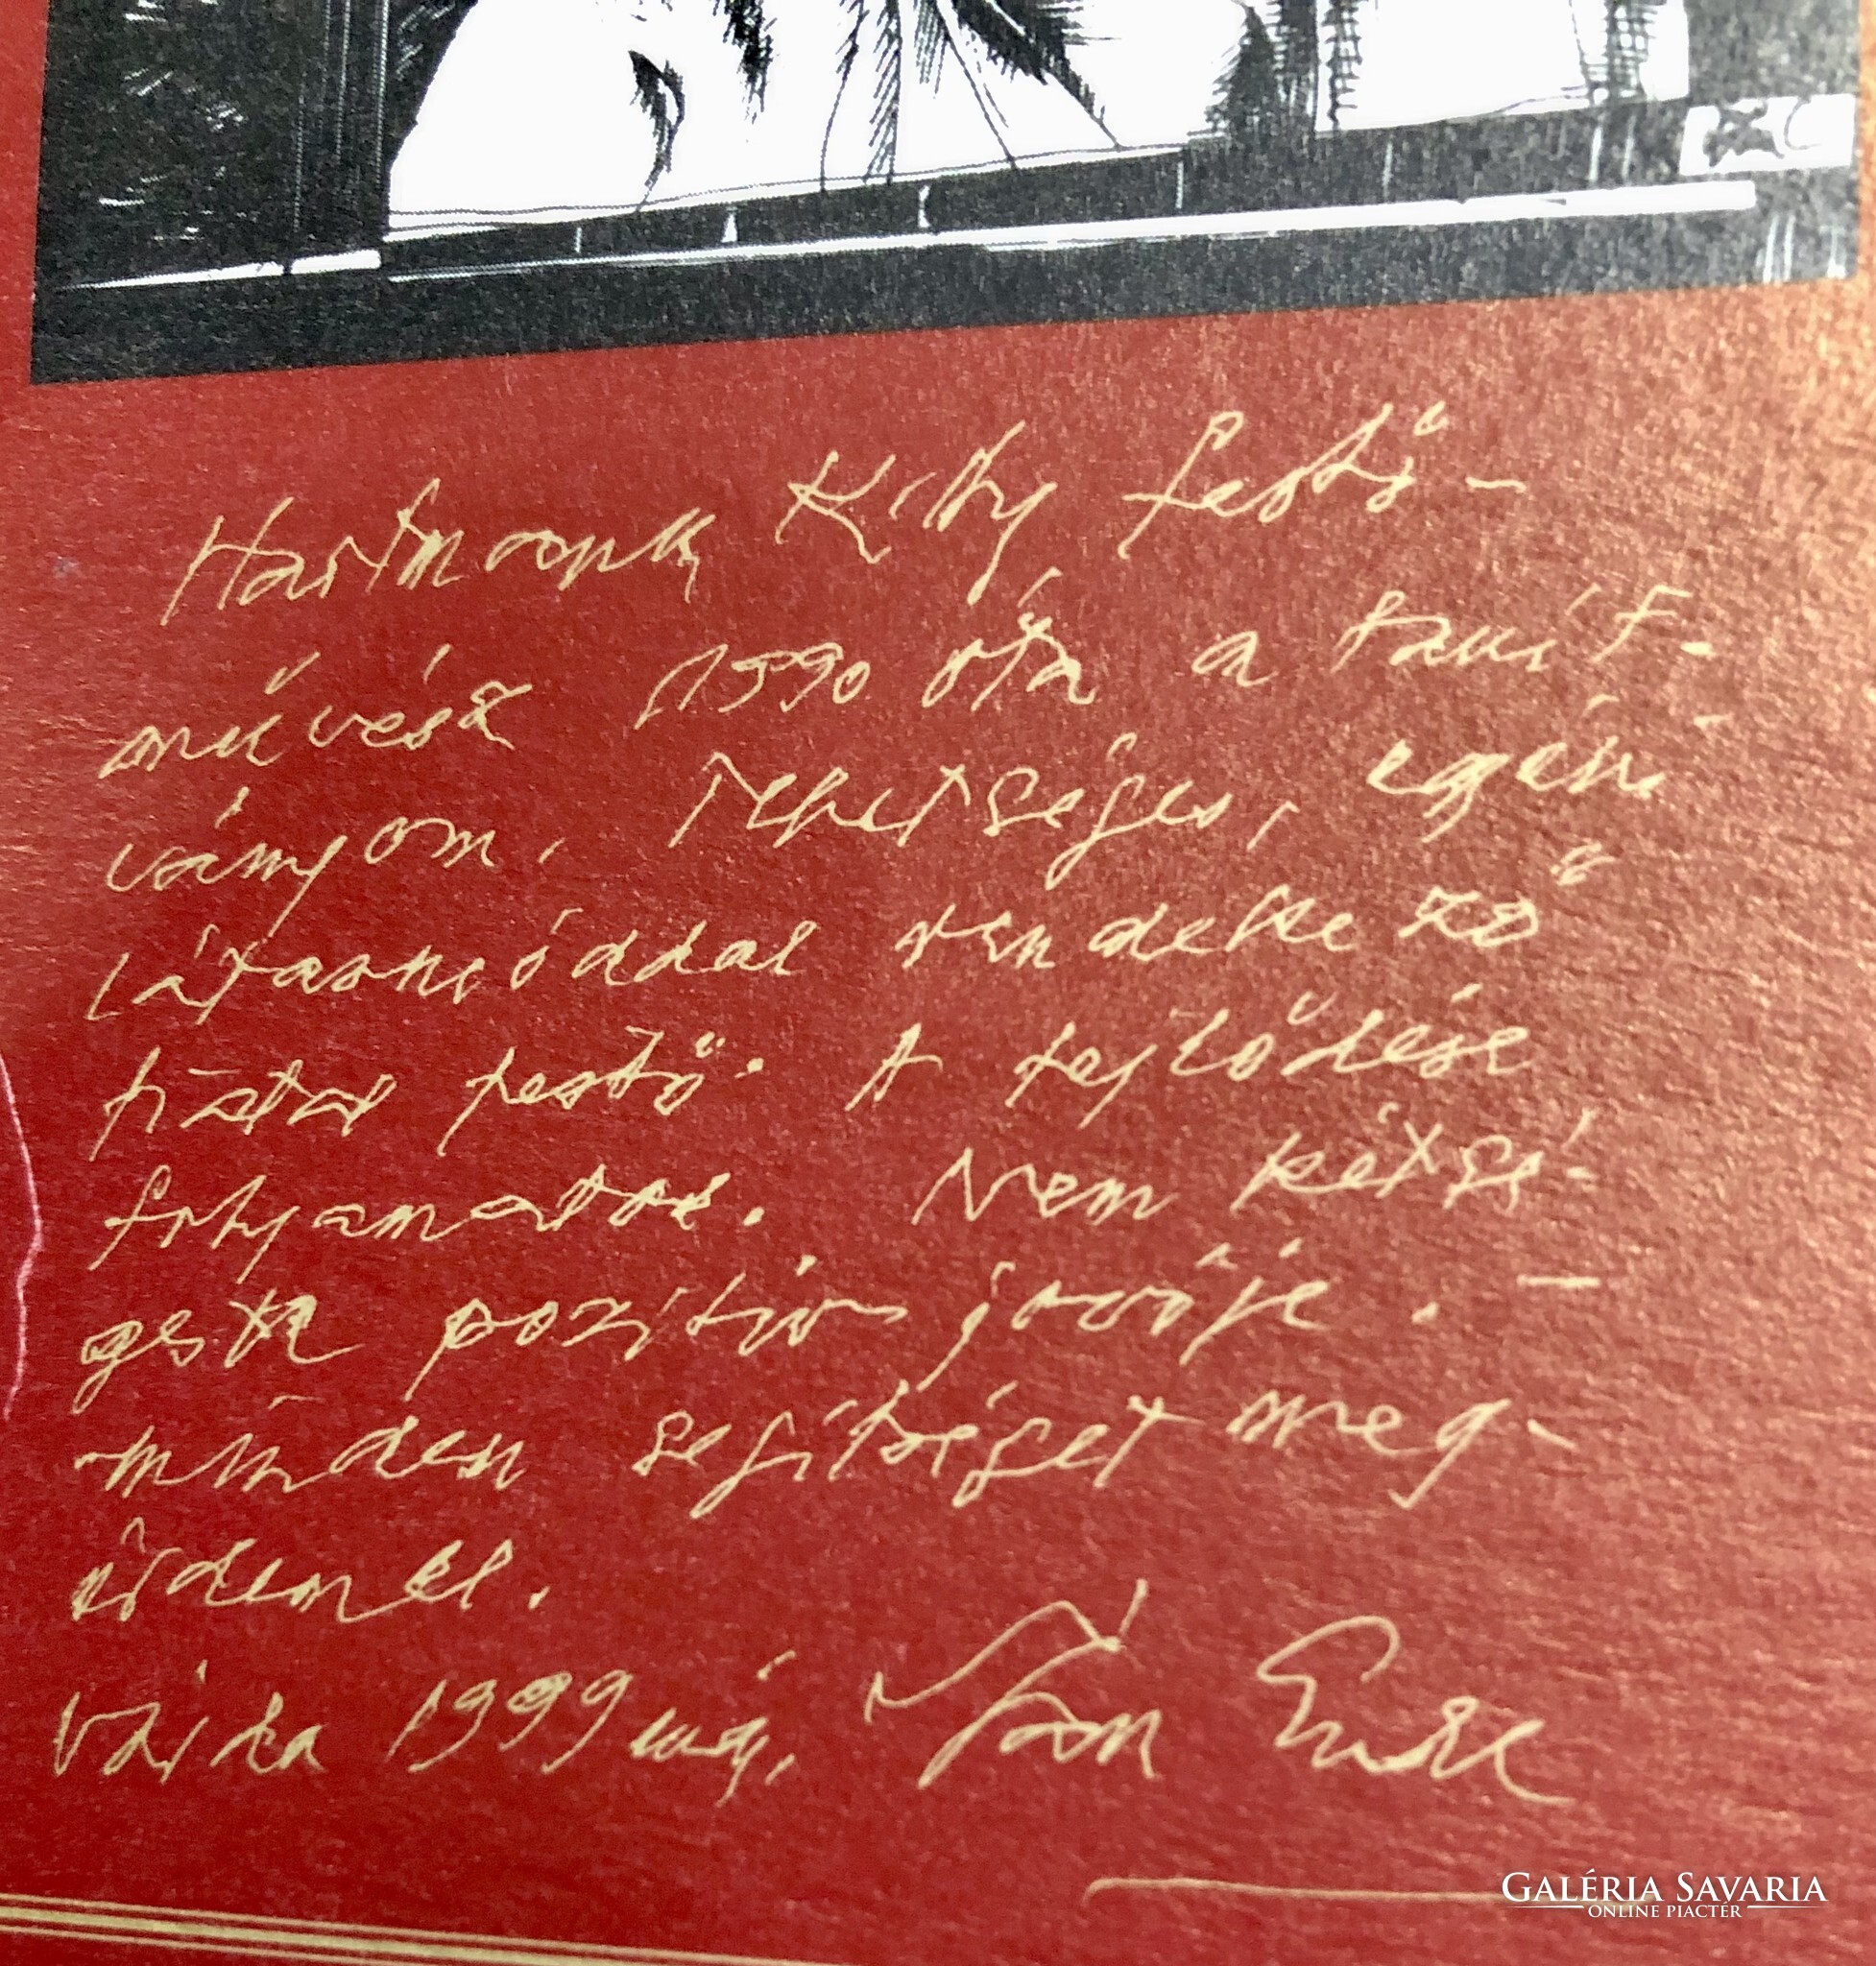 Hartmann Kitty festő-
művész 1990 óta a tanít-
ványom. Tehetséges, egyéni
látásmóddal rendelkező
fiatal festő. A fejlődése
folyamatos. Nem kétsé-
ges pozitív jövője. –
minden segítséget meg-
érdemel.
Vajta 1999 máj. Túry Emese
GALÉRIA SAVARIA
ONLINE PIACTÉR